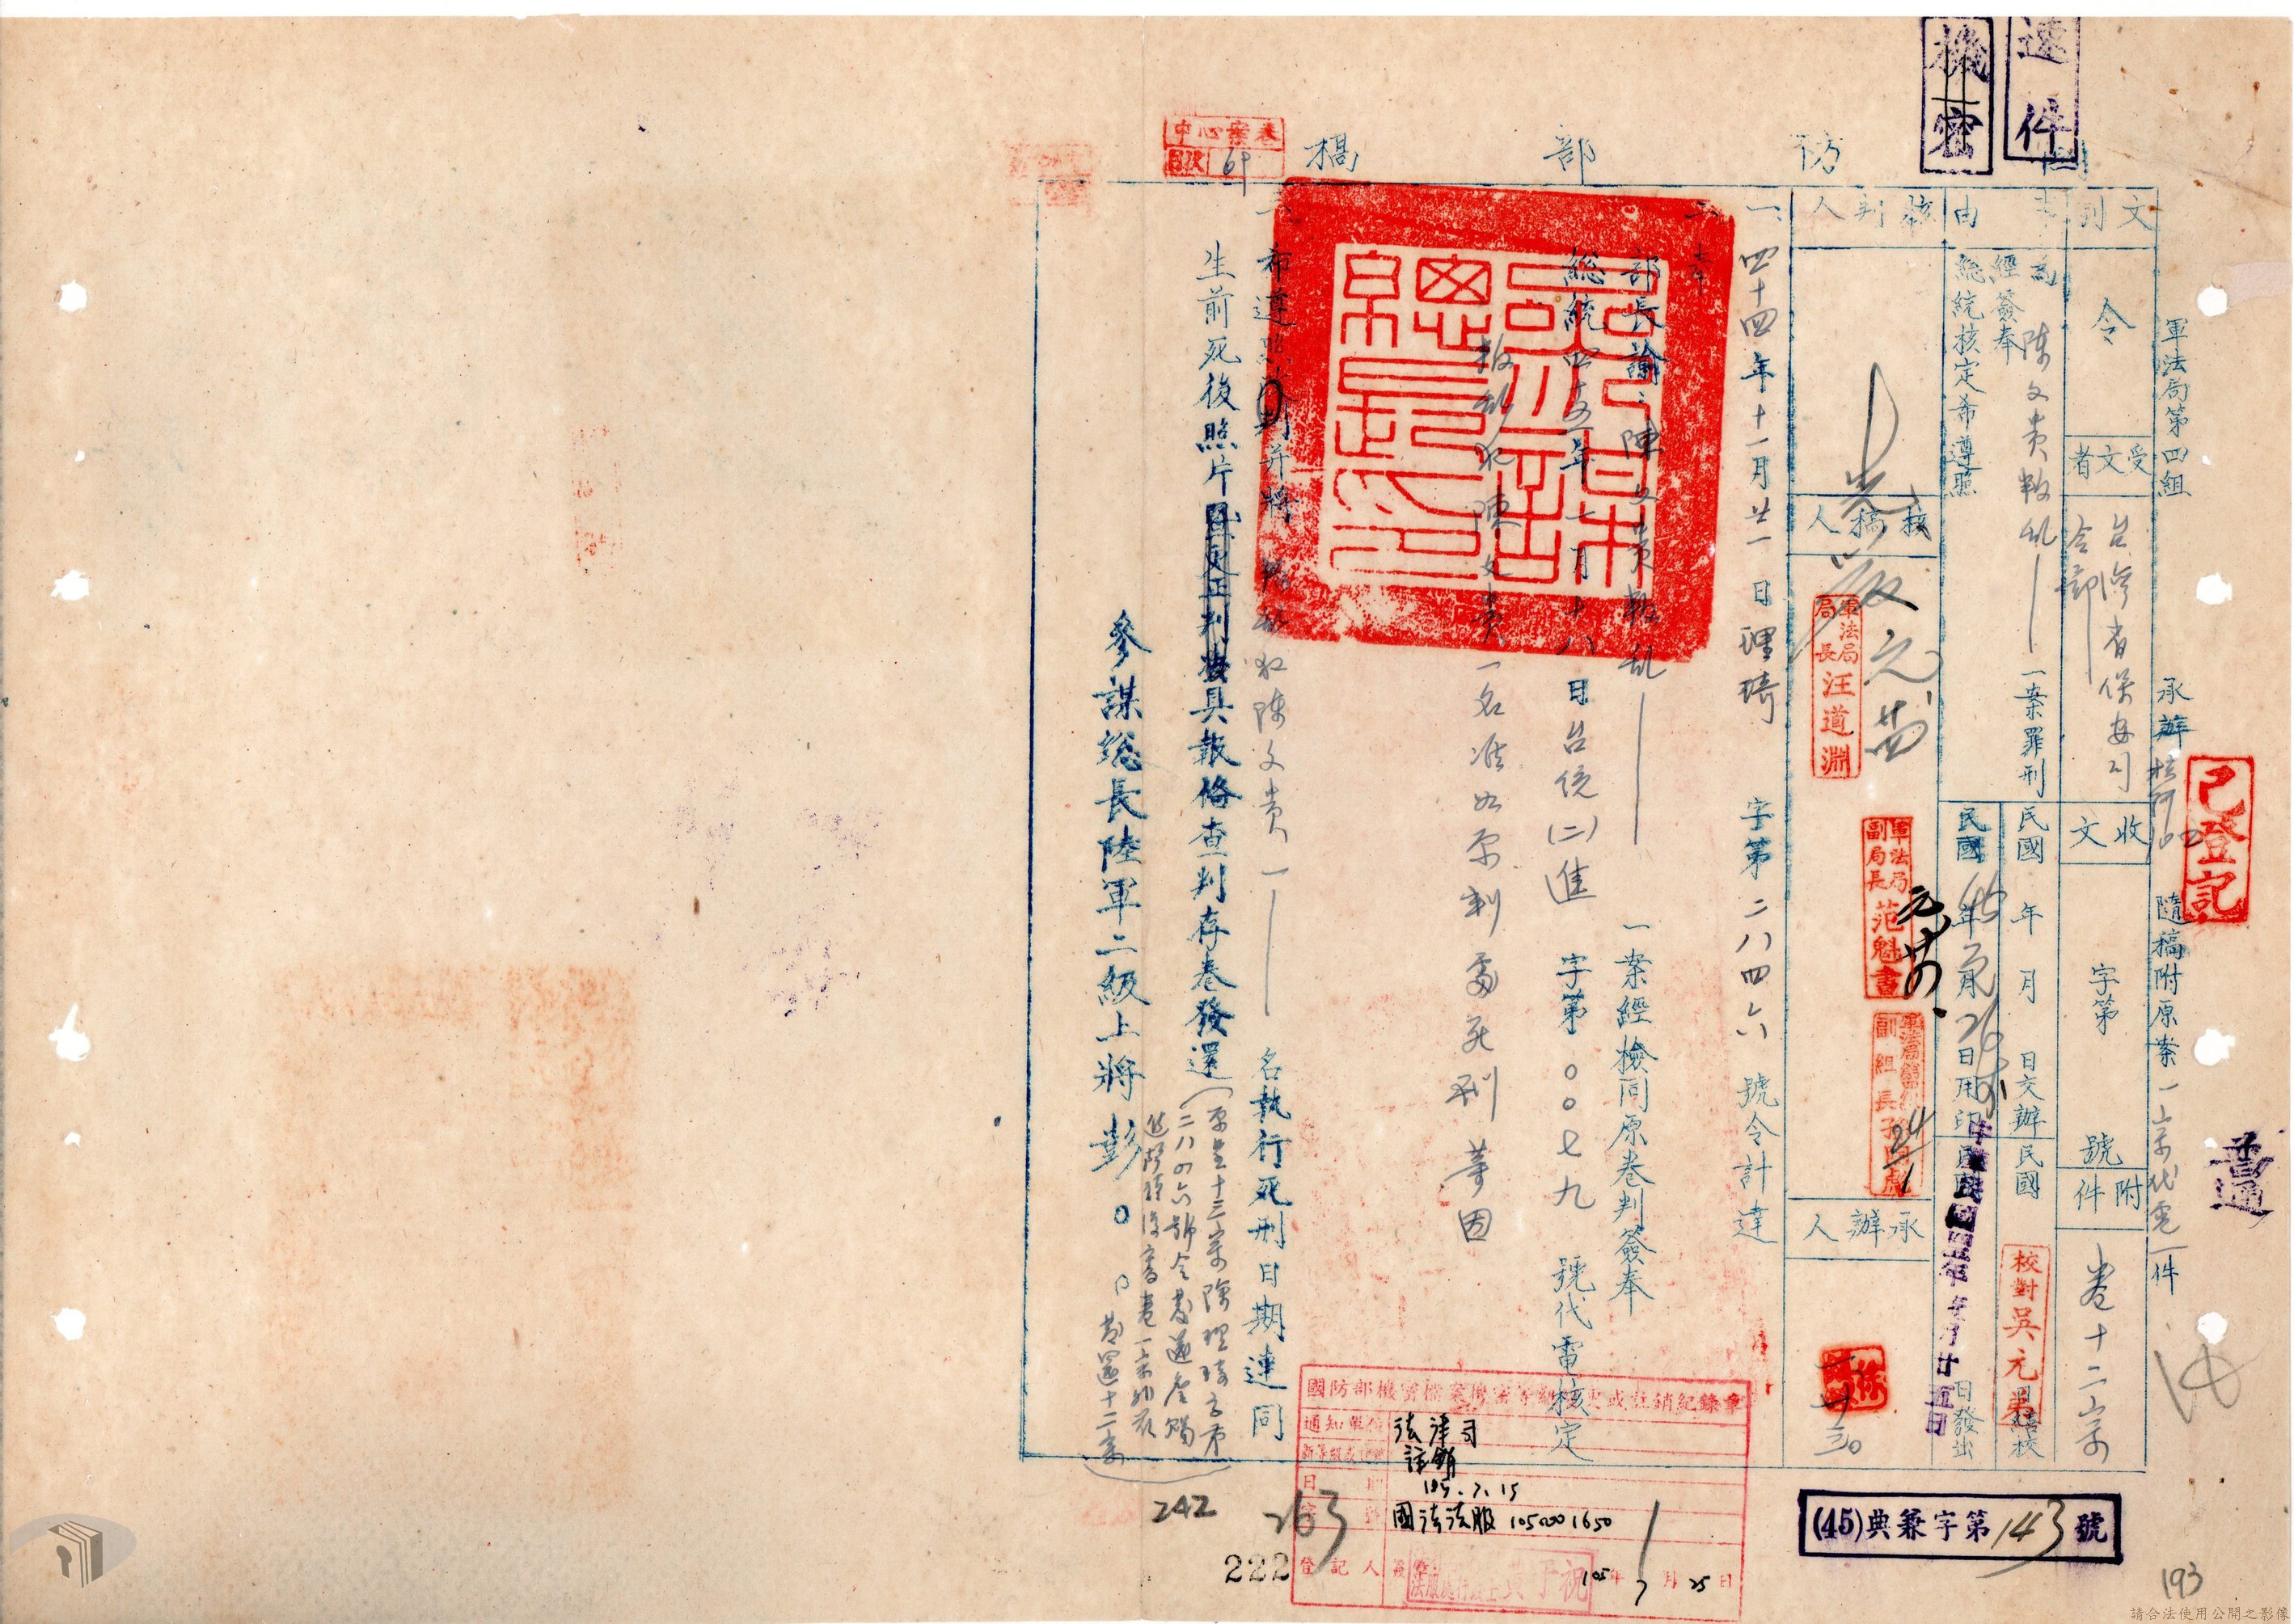 速件
機密
國防部稿
軍法局第四組 承辦 隨稿附原案一宗代電一件
已登記
普通
文別 令
受文者 台灣省保安司令部
收文 字第 號
附件 卷十二宗
事由
為陳文貴叛乱一案罪刑
經簽奉
總統核定希遵照
民國 年 月 日交辦
民國 日繕校
校對吳元弟
民國45年元月26日用印
日發出
核判人
核稿人
軍法局局長汪道淵
軍法局副局長范魁書
副組長
承辦人
一、四十四年十一月廿一日理琦字第二八四六號令計達
二、奉
部長諭:陳文貴叛乱一案經檢同原卷判簽奉
總統四十五年一月十八日台統(二)進字第〇〇七九號代電核定
叛乱犯陳文貴一名准如原判處死刑等因
希遵照 并將叛乱犯陳文貴一名執行死刑日期連同
生前死後照片 具報俻查判存卷發還
(原呈十三宗除理琦字第
二八四六號令
發還十二宗)
參謀總長陸軍二級上將彭〇〇
中心案卷
目次 69
國防部機密檔案機密等級變更或註銷紀錄章
通知單位 法律司
註銷
日期 105.7.15
字號 國法法服1050001650
登記人
105年7月25日
(45)典兼字第143號
242
263
222
193
請合法使用公開之影像